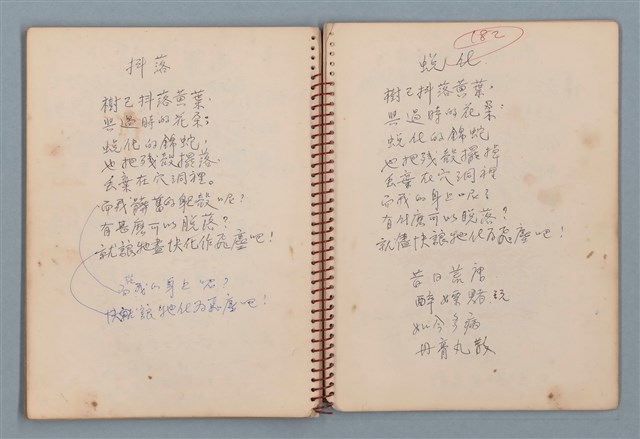 抖落
樹已抖落黃葉，
與過時的花朵；
蛻化的錦蛇，
也把殘殼擺落，
丟棄在穴洞裡。
而我髒舊的軀殼呢？
有甚麼可以脫落？
就讓牠儘快化作飛塵吧！
而我的身上呢？
快讓牠化為飛塵吧！
182
蛻化
樹已抖落黃葉，
與過時的花朵；
蛻化的錦蛇
也把殘殼擺掉
丟棄在穴洞裡。
而我的身上呢？
有什麼可以脫落？
就儘快讓牠化為飛塵吧！
昔日荒唐
醉嫖賭玩
如今多病
丹膏丸散